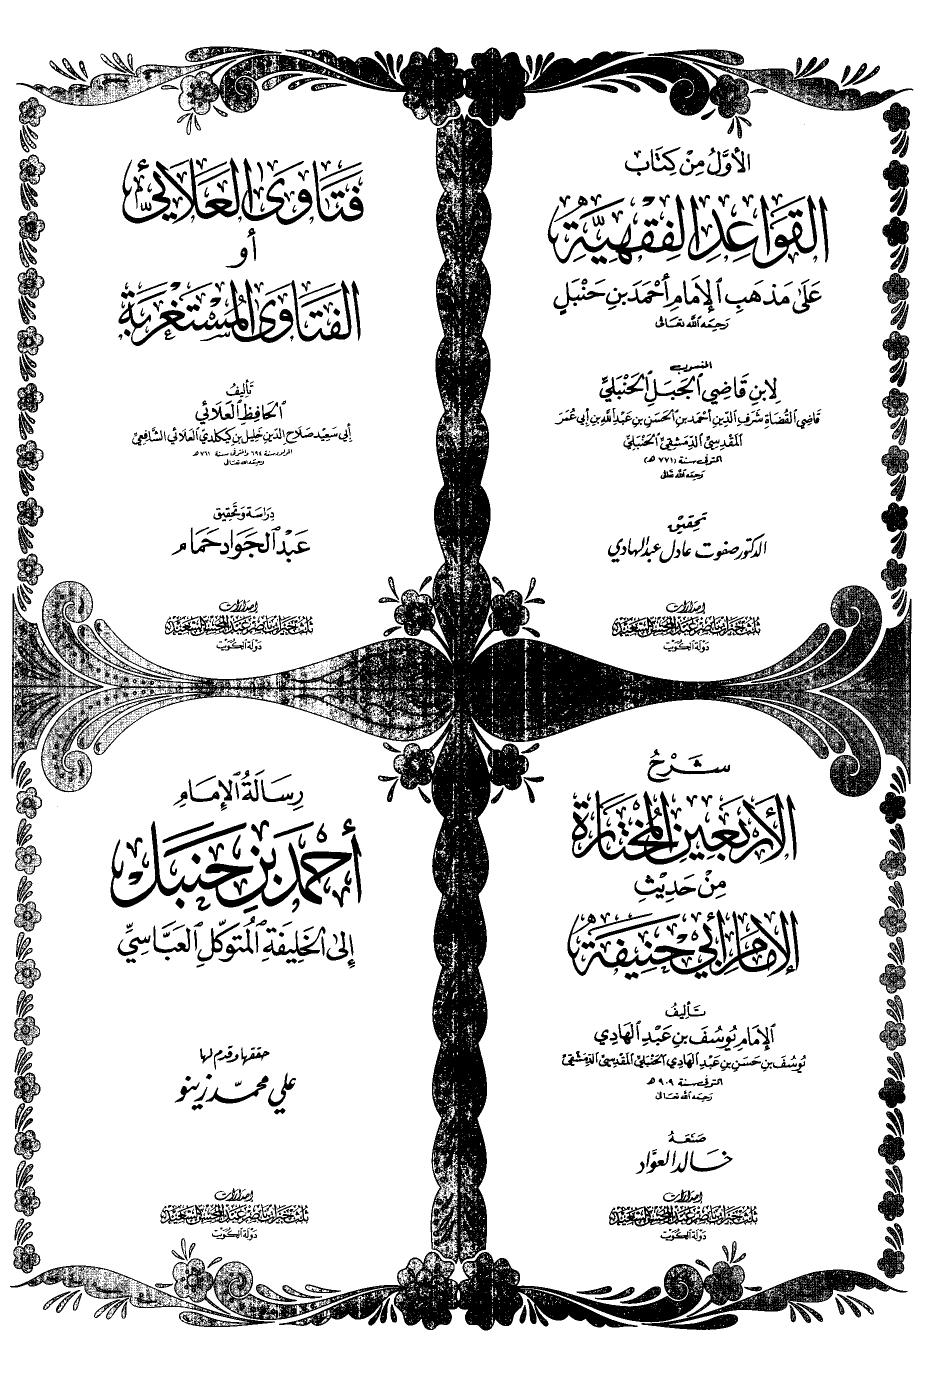 الأوَّلُ مِنْ كِتَابِ
القَوَاعِدِ الفِقْهِيَّةِ
عَلَى مَذْهَبِ الإِمَامِ أَحْمَدَ بنِ حَنْبَلٍ
رَحِمَهُ اللهُ تَعَالَى
المنسوب
لِابنِ قَاضِي الجَبَلِ الحَنْبَلِيِّ
قَاضِي القُضَاةِ شَرَفِ الدِّينِ أَحْمَدَ بنِ الحَسَنِ بنِ عَبْدِ اللهِ بنِ أَبِي عُمَرَ
المَقْدِسِيِّ الدِّمَشْقِيِّ الحَنْبَلِيِّ
المتوفى سنة (٧٧١ هـ)
رَحِمَهُ اللهُ تَعَالَى
تحقيق
الدكتور صفوت عادل عبد الهادي
إصدارات
دَوْلَةُ الكُوَيْت
فَتَاوَى العَلَائِيِّ
أو
الفَتَاوَى المُسْتَغْرَبَةِ
تَأْلِيفُ
الحَافِظِ العَلَائِيِّ
أَبِي سَعِيد صَلَاحِ الدِّينِ خَلِيلِ بنِ كَيْكَلْدِي العَلَائِيِّ الشَّافِعِيِّ
المولود سنة ٦٩٤ والمتوفى سنة ٧٦١ هـ
رحمه الله تعالى
دِرَاسَة وَتَحْقِيق
عَبْدُ الجَوَاد حَمَام
إصدارات
دَوْلَةُ الكُوَيْت
شَرْحُ
الأَرْبَعِينَ المُخْتَارَةِ
مِنْ حَدِيثِ
الإِمَامِ أَبِي حَنِيفَةَ
تَأْلِيفُ
الإِمَامِ يُوسُفَ بنِ عَبْدِ الهَادِي
يُوسُفَ بنِ حَسَنِ بنِ عَبْدِ الهَادِي الحَنْبَلِيِّ المَقْدِسِيِّ الدِّمَشْقِيِّ
المتوفى سنة ٩٠٩ هـ
رَحِمَهُ اللهُ تَعَالَى
صَنَعَهُ
خَالد العوَّاد
إصدارات
دَوْلَةُ الكُوَيْت
رِسَالَةُ الإِمَامِ
أَحْمَدَ بنِ حَنْبَلٍ
إِلَى الخَلِيفَةِ المُتَوَكِّلِ العَبَّاسِيِّ
حققها وقدم لها
علي محمد زينو
إصدارات
دَوْلَةُ الكُوَيْت